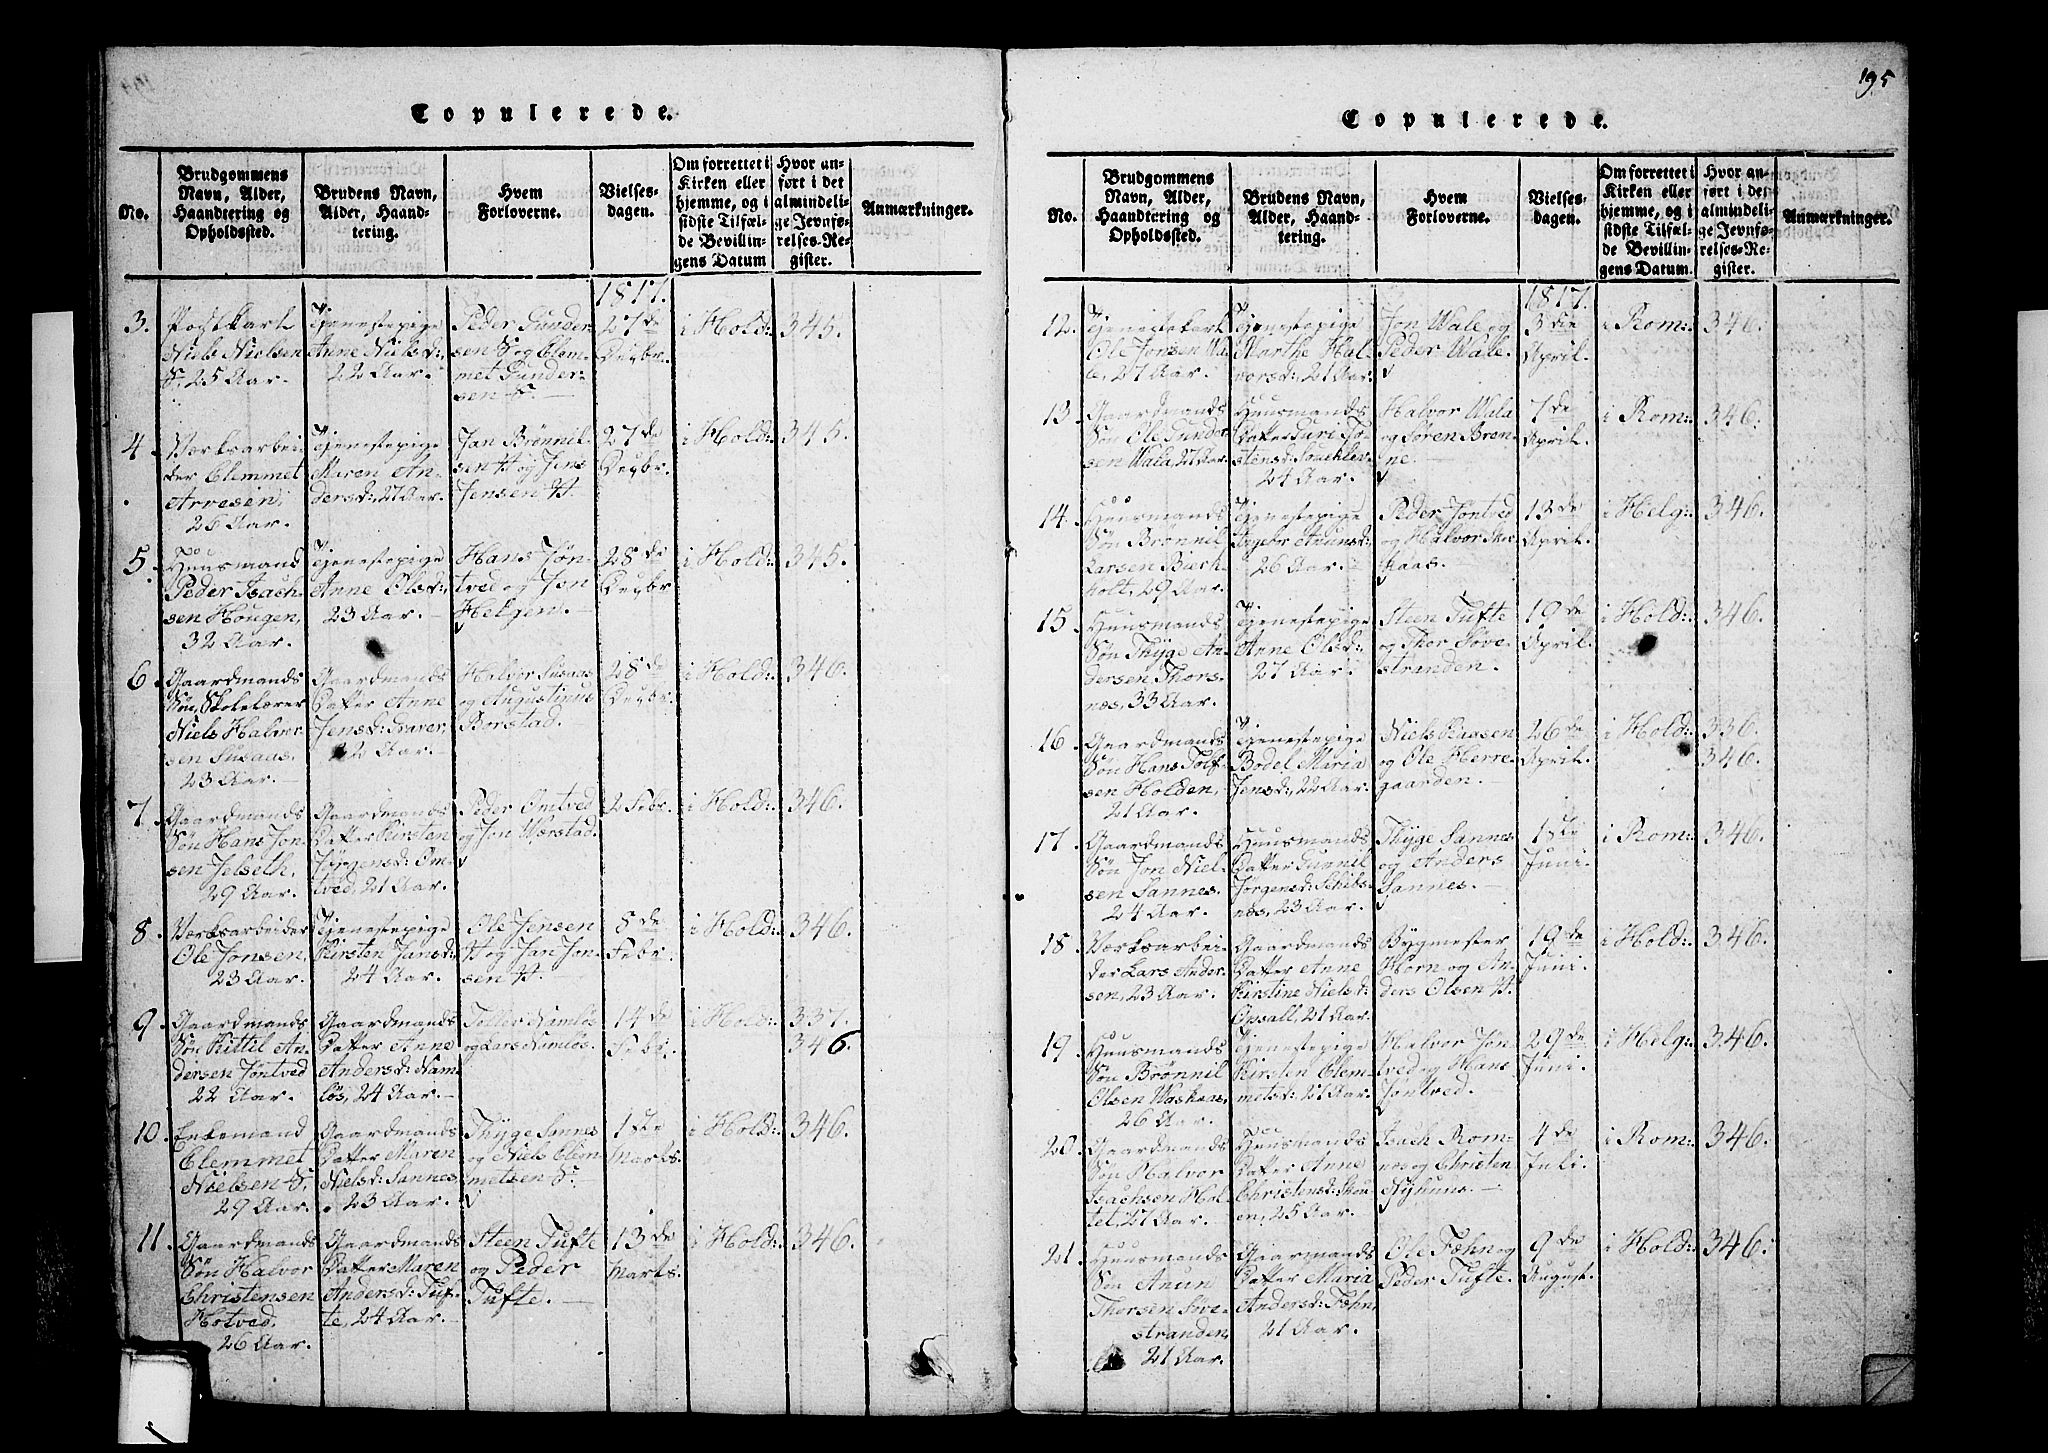 Copulerede.
No.
Brudgommens
Navn, Alder,
Haandtering og
Opholdssted.
Brudens Navn,
Alder, Haand-
tering.
Hvem
Forloverne.
Vielses-
dagen.
Om forrettet i
Kirken eller
hjemme, og i
sidste Tilfæl-
de Bevillin-
gens Datum
Hvor an-
ført i det
almindeli-
ge Jevnfø-
relses-Re-
gister.
Anmærkninger.
1817.
3.
Postkarl
Niels Nielsen
F. 25 Aar.
Tjenestepige
Anne Nielsd:,
22 Aar.
Peder Gunder-
sen F. og Clem-
met Gunder-
sen F.
27de
Decbr.
i Hold:
345.
4.
Værksarbei-
der Clemmet
Arvesen,
26 Aar.
Tjenestepige
Maren An-
dersd:, 27 Aar.
Jan Brønnil-
sen H og Jens
Jensen H.
27de
Decbr.
i Hold:
345.
5.
Huusmand
Peder Isach-
sen Hougen,
32 Aar.
Tjenestepige
Anne Olsd:,
23 Aar.
Hans Jøn-
tved og Jon
Helgen.
28de
Decbr
i Hold:
345.
6.
Gaardmands
Søn, Skolelærer
Niels Halvor-
sen Susaas,
23 Aar.
Gaardmands
Datter Anne
Jensd: Graver,
22 Aar.
Halvor Susaas
og Augustinus
Borstad.
28de
Decbr.
i Hold:
346.
7.
Gaardmands
Søn Hans Jon-
sen Jelseth,
29 Aar.
Gaardmands
Datter Kirsten
Jørgensd: Om-
tved, 21 Aar.
Peder Omtved
og Jon Wærstad.
2 Febr.
i Hold:
346.
8.
Værksarbeider
Ole Jonsen,
23 Aar.
Tjenestepige
Kirsten Jansd:
24 Aar.
Ole Jensen
H og Jan Jon-
sen H.
8de
Febr.
i Hold:
346.
9.
Gaardmands
Søn Kittil An-
dersen Jøntved
22 Aar.
Gaardmands
Datter Anne
Andersd: Nam-
løs, 24 Aar.
Toller Namløs
og Lars Namløs.
14de
Febr.
i Hold:
337.
346.
10.
Enkemand
Clemmet
Nielsen F.
29 Aar.
Gaardmands
Datter Maren
Nielsd: Sannes,
23 Aar.
Thyge Sannes
og Niels Clem-
metsen F.
1ste
Marts.
i Hold:
346.
11.
Gaardmands
Søn Halvor
Christensen
Hotved,
26 Aar.
Gaardmands
Datter Maren
Andersd: Tuf-
te, 24 Aar.
Steen Tufte
og Peder
Tufte.
13de
Marts.
i Hold:
346.
195
Copulerede.
No.
Brudgommens
Navn, Alder,
Haandtering og
Opholdssted.
Brudens Navn,
Alder, Haand-
tering.
Hvem
Forloverne.
Vielses-
dagen.
Om forrettet i
Kirken eller
hjemme, og i
sidste Tilfæl-
de Bevillin-
gens Datum.
Hvor an-
ført i det
almindeli-
ge Jevnfø-
relses-Re-
gister.
Anmærkninger.
1817.
12.
Tjenestekarl
Ole Jonsen Wa-
le, 27 Aar.
Tjenestepige
Marthe Hal-
vorsd:, 21 Aar.
Jon Wale og
Peder Wale.
3die
April.
i Rom:
346.
13.
Gaardmands
Søn Ole Gunder-
sen Wala, 27 Aar.
Huusmands
Datter Guri To-
stensd:
24 Aar.
Halvor Wala
og Søren Bren-
ne.
7de
April.
i Rom:
346.
14.
Huusmands
Søn Brønnil
Larsen Bierk-
holt, 29 Aar.
Tjenestepige
Ingebr Anunsd:
26 Aar.
Peder Jøntved
og Halvor
13de
April.
i Helg:
346.
15.
Huusmands
Søn Thyge An-
dersen Thors-
næs, 33 Aar.
Tjenestepige
Anne Olsd:
27 Aar.
Steen Tufte
og Thor Søve-
stranden.
19de
April.
i Hold:
346.
16.
Gaardmands
Søn Hans Tolf-
sen Holden,
21 Aar.
Tjenestepige
Bodel Maria
Jensd:, 22 Aar.
Niels Kaasen
og Ole Herre-
gaarden.
26de
April.
i Hold:
336.
346.
17.
Gaardmands
Søn Jon Niel-
sen Sannes,
24 Aar.
Huusmands
Datter Gunnil
Jørgensd: Schibs-
næs, 23 Aar.
Thyge Sannes
og Anders
Sannes.
1ste
Juni.
i Rom:
346.
18.
Værksarbei-
der Lars Ander-
sen, 23 Aar.
Gaardmands
Datter Anne
Kirstine Nielsd:
Opsall, 21 Aar.
Bygmester
Horn og An-
ders Olsen H.
19de
Juni.
i Hold:
346.
19.
Huusmands
Søn Brønnil
Olsen
26 Aar.
Tjenestepige
Kirsten Clem-
metsd: 21 Aar.
Halvor Jøn-
tved og Hans
Jøntved.
29de
Juni.
i Helg:
346.
20.
Gaardmands
Søn Halvor
Isachsen Hol-
tet, 27 Aar.
Huusmands
Datter Anne
Christensd: Skou-
en, 25 Aar.
Isach Rom-
næs og Christen
Nyhuus.
4de
Juli.
i Rom:
346.
21.
Huusmands
Søn Anun
Thorsen Søve-
stranden,
21 Aar.
Gaarmands
Datter Maria
Andersd: Fæhn,
21 Aar.
Ole Fæhn og
Peder Tufte.
9de
August.
i Hold:
346.